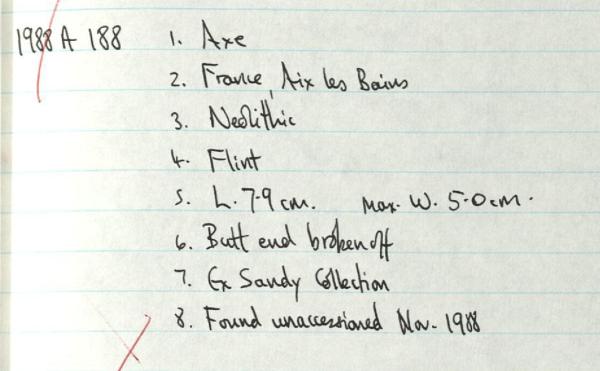 1988 A 188 1. Axe
2. France, Aix les Bains
3. Neolithic
4. Flint
5. L. 7.9 cm. Max. W. 5.0 cm.
6. Butt end broken off
7. Ex Sandy Collection
8. Found unaccessioned Nov. 1988